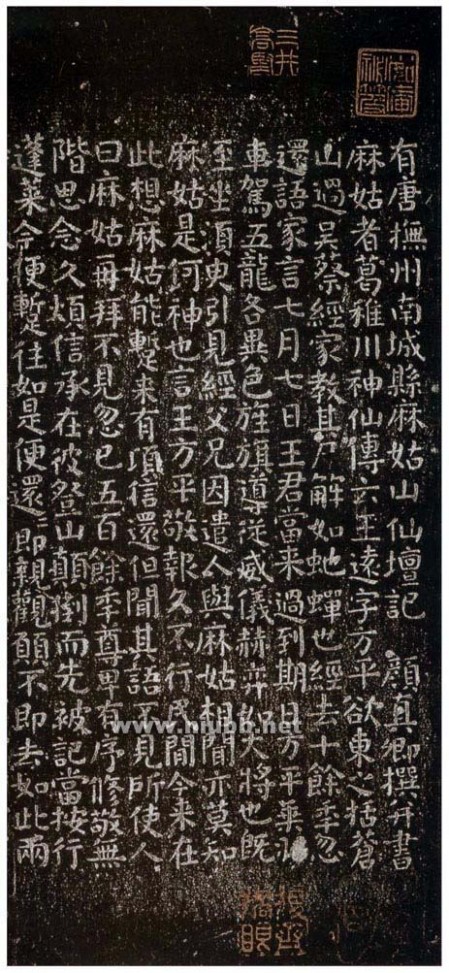 有唐撫州南城縣麻姑山仙壇記 顏真卿撰并書
麻姑者葛稚川神仙傳云王遠字方平欲東之括蒼
山過吳蔡經家教其尸解如虵蟬也經去十餘季忽
還語家言七月七日王君當来過到期日方平乘羽
車駕五龍各異色旌旗導從威儀赫弈如大將也既
至坐須臾引見經父兄因遣人與麻姑相聞亦莫知
麻姑是何神也言王方平敬報久不行民間今来在
此想麻姑能蹔来有頃信還但聞其語不見所使人
曰麻姑再拜不見忽已五百餘季尊卑有序修敬無
階思念久煩信承在彼登山顛倒而先被記當按行
蓬萊今便蹔往如是便還〻即親觀願不即去如此兩
三井高堅